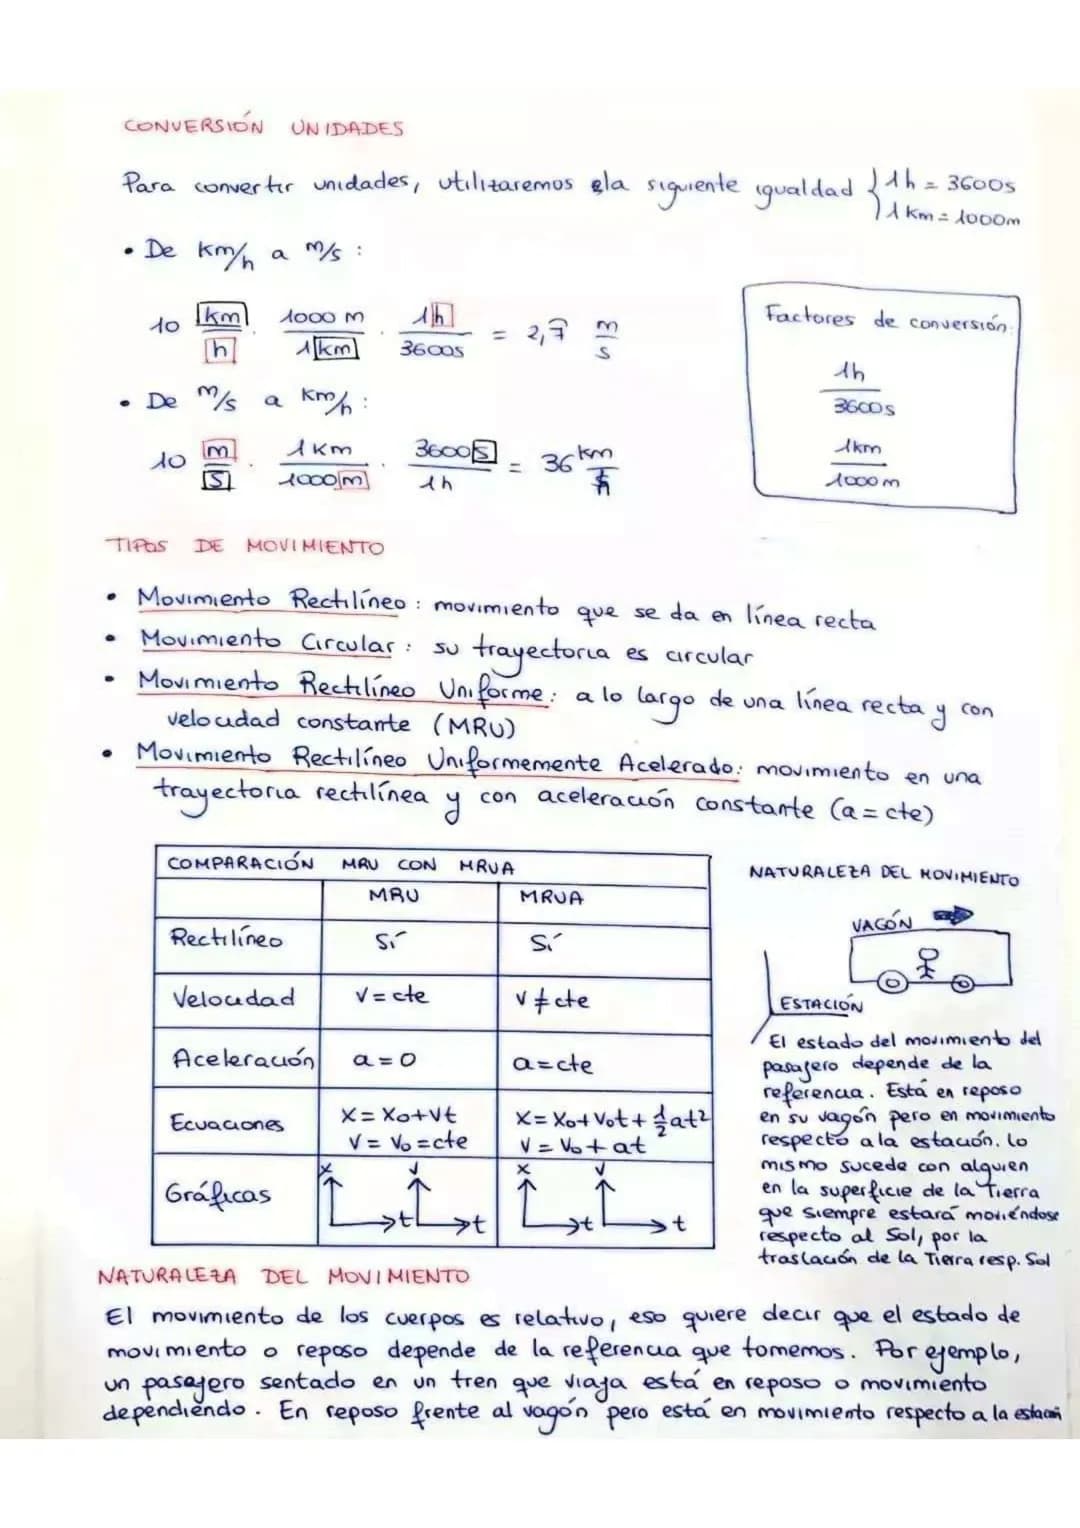 CONVERSIÓN UNIDADES
Para convertir unidades, utilizaremos la siguiente igualdad { 1h = 3600s
1 km = 1000m
• De km/h a m/s :
10 km/h · 1000 m/1 km · 1h/3600s = 2,7̂ m/s
• De m/s a km/h :
10 m/s · 1 km/1000 m · 3600 s/1h = 36 km/h
Factores de conversión:
1h
3600s
1km
1000 m
TIPOS DE MOVIMIENTO
• Movimiento Rectilíneo : movimiento que se da en línea recta
• Movimiento Circular : su trayectoria es circular
• Movimiento Rectilíneo Uniforme : a lo largo de una línea recta y con
velocidad constante (MRU)
• Movimiento Rectilíneo Uniformemente Acelerado: movimiento en una
trayectoria rectilínea y con aceleración constante (a = cte)
COMPARACIÓN MRU CON MRUA
MRU MRUA
Rectilíneo Sí Sí
Velocidad V = cte V ≠ cte
Aceleración a = 0 a = cte
Ecuaciones X = X₀ + Vt X = X₀ + V₀t + ½at²
V = V₀ = cte V = V₀ + at
Gráficas x t v t x t v t
NATURALEZA DEL MOVIMIENTO
VAGÓN
ESTACIÓN
El estado del movimiento del
pasajero depende de la
referencia. Está en reposo
en su vagón pero en movimiento
respecto a la estación. Lo
mismo sucede con alguien
en la superficie de la Tierra
que siempre estará moviéndose
respecto al Sol, por la
traslación de la Tierra resp. Sol
NATURALEZA DEL MOVIMIENTO
El movimiento de los cuerpos es relativo, eso quiere decir que el estado de
movimiento o reposo depende de la referencia que tomemos. Por ejemplo,
un pasajero sentado en un tren que viaja está en reposo o movimiento
dependiendo. En reposo frente al vagón pero está en movimiento respecto a la estación